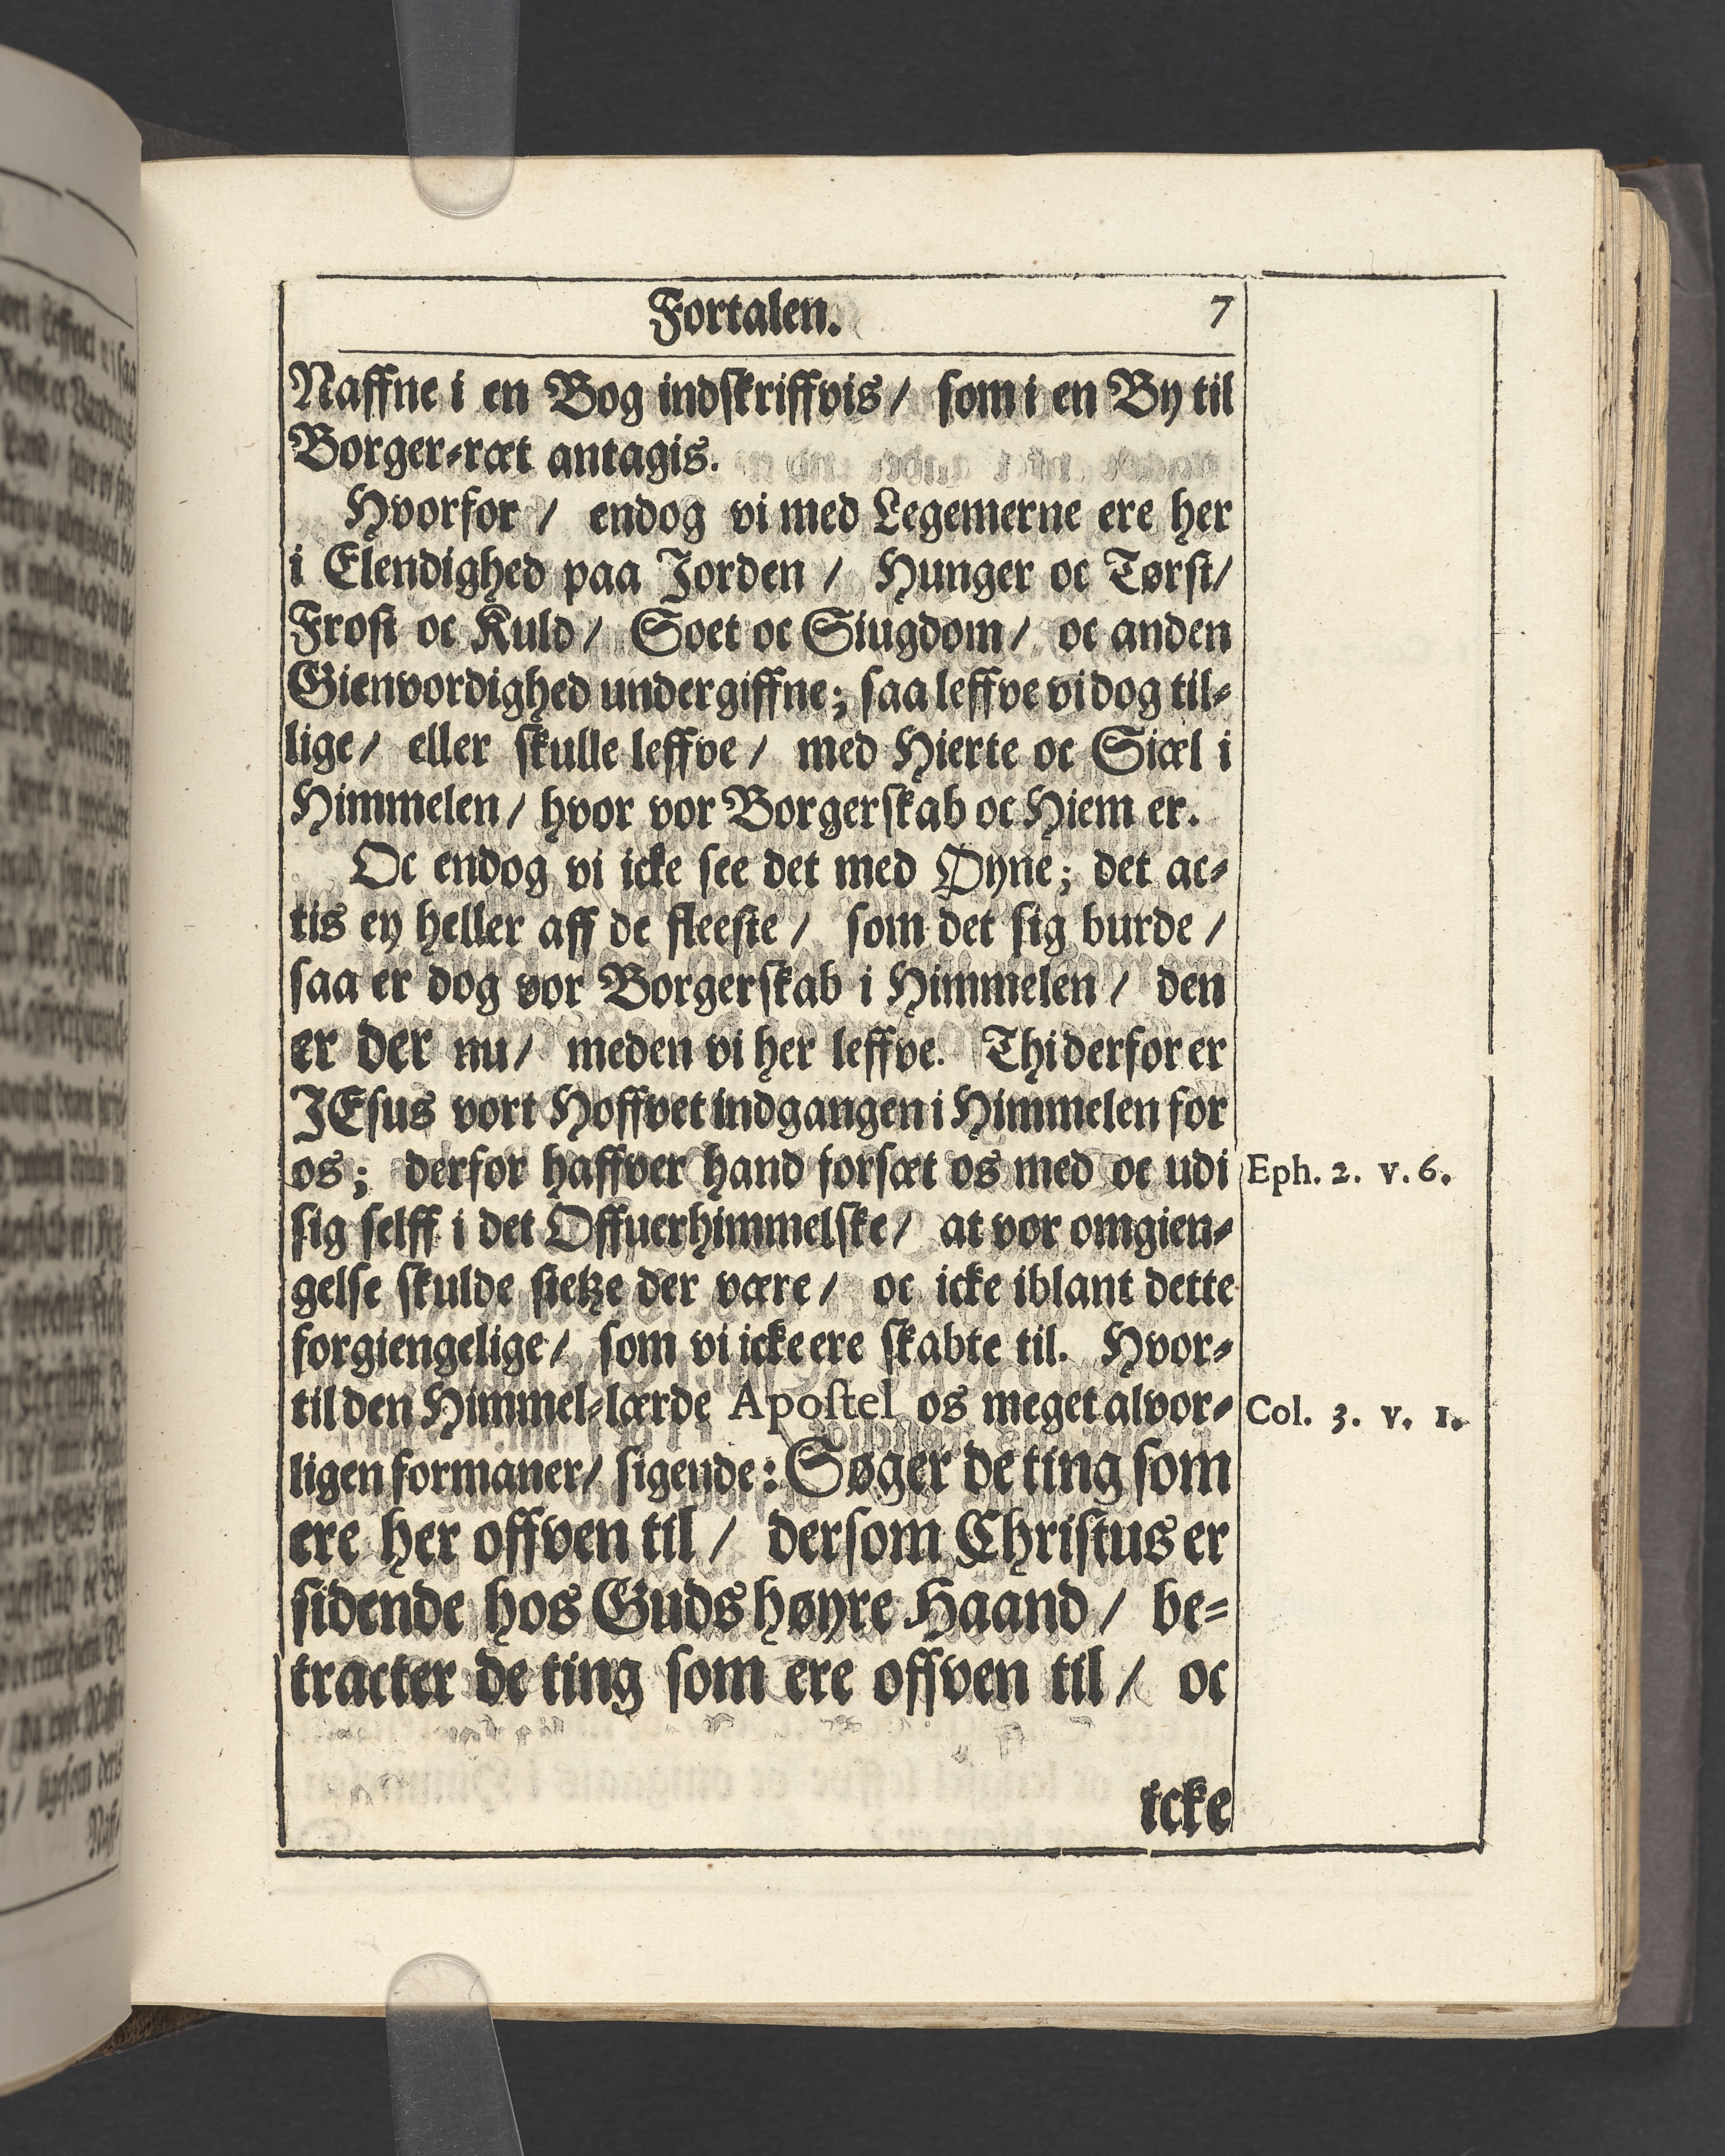 Fortalen. 7
Naffne i en Bog indskriffvis / som i en By til
Borger-ræt antagis.
Hvorfor / endog vi med Legemerne ere her
i Elendighed paa Jorden / Hunger oc Tørst /
Frost oc Kuld / Soet oc Siugdom / oc anden
Gienvordighed undergiffne; saa leffve vi dog til-
lige / eller skulle leffve / med Hierte oc Siæl i
Himmelen / hvor vor Borgerskab oc Hiem er.
Oc endog vi icke see det med Øyne; det ac-
tis ey heller aff de fleeste / som det sig burde /
saa er dog vor Borgerskab i Himmelen / den
er der nu / meden vi her leffve. Thi derfor er
JEsus vort Hoffvet indgangen i Himmelen for
os; derfor haffver hand forsæt os med oc udi
Eph. 2. v. 6.
sig selff i det Offuerhimmelske / at vor omgien-
gelse skulde sietze der være / oc icke iblant dette
forgiengelige / som vi icke ere skabte til. Hvor-
til den Himmel-lærde Apostel os meget alvor-
Col. 3. v. 1.
ligen formaner / sigende: Søger de ting som
ere her offven til / dersom Christus er
sidende hos Guds høyre Haand / be-
tracter de ting som ere offven til / oc
icke